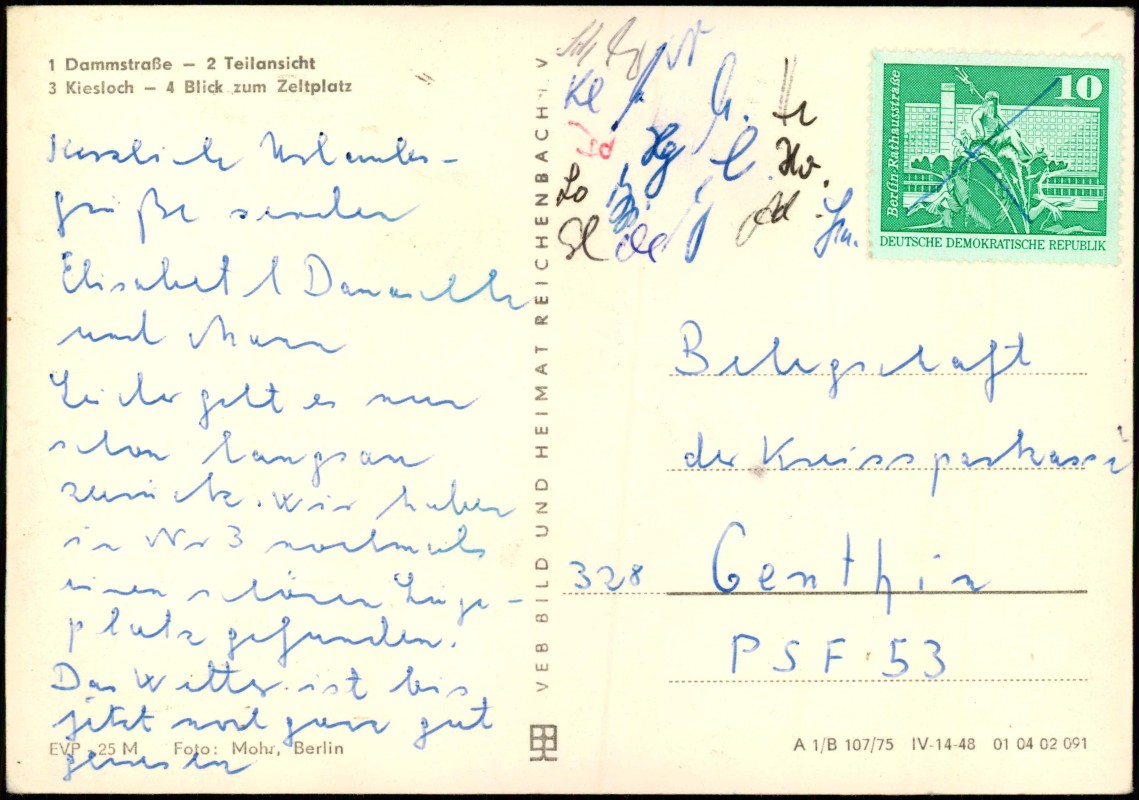 1 Dammstraße — 2 Teilansicht
3 Kiesloch — 4 Blick zum Zeltplatz
Herzliche Urlaubs-
grüße senden
Elisabet
und Mann
Leider geht es nun
schon langsam
zurück. Wir haben
in Nr 3 nochmals
einen schönen Liege-
platz gefunden.
Das Wetter ist bis
jetzt noch ganz gut
gewesen
EVP -,25 M Foto: Mohr, Berlin
VEB BILD UND HEIMAT REICHENBACH i. V
Kl
Hg
Lo
Hv.
10
Berlin, Rathausstraße
DEUTSCHE DEMOKRATISCHE REPUBLIK
Belegschaft
der Kreissparkasse
328 Genthin
PSF 53
A 1/B 107/75 IV-14-48 01 04 02 091